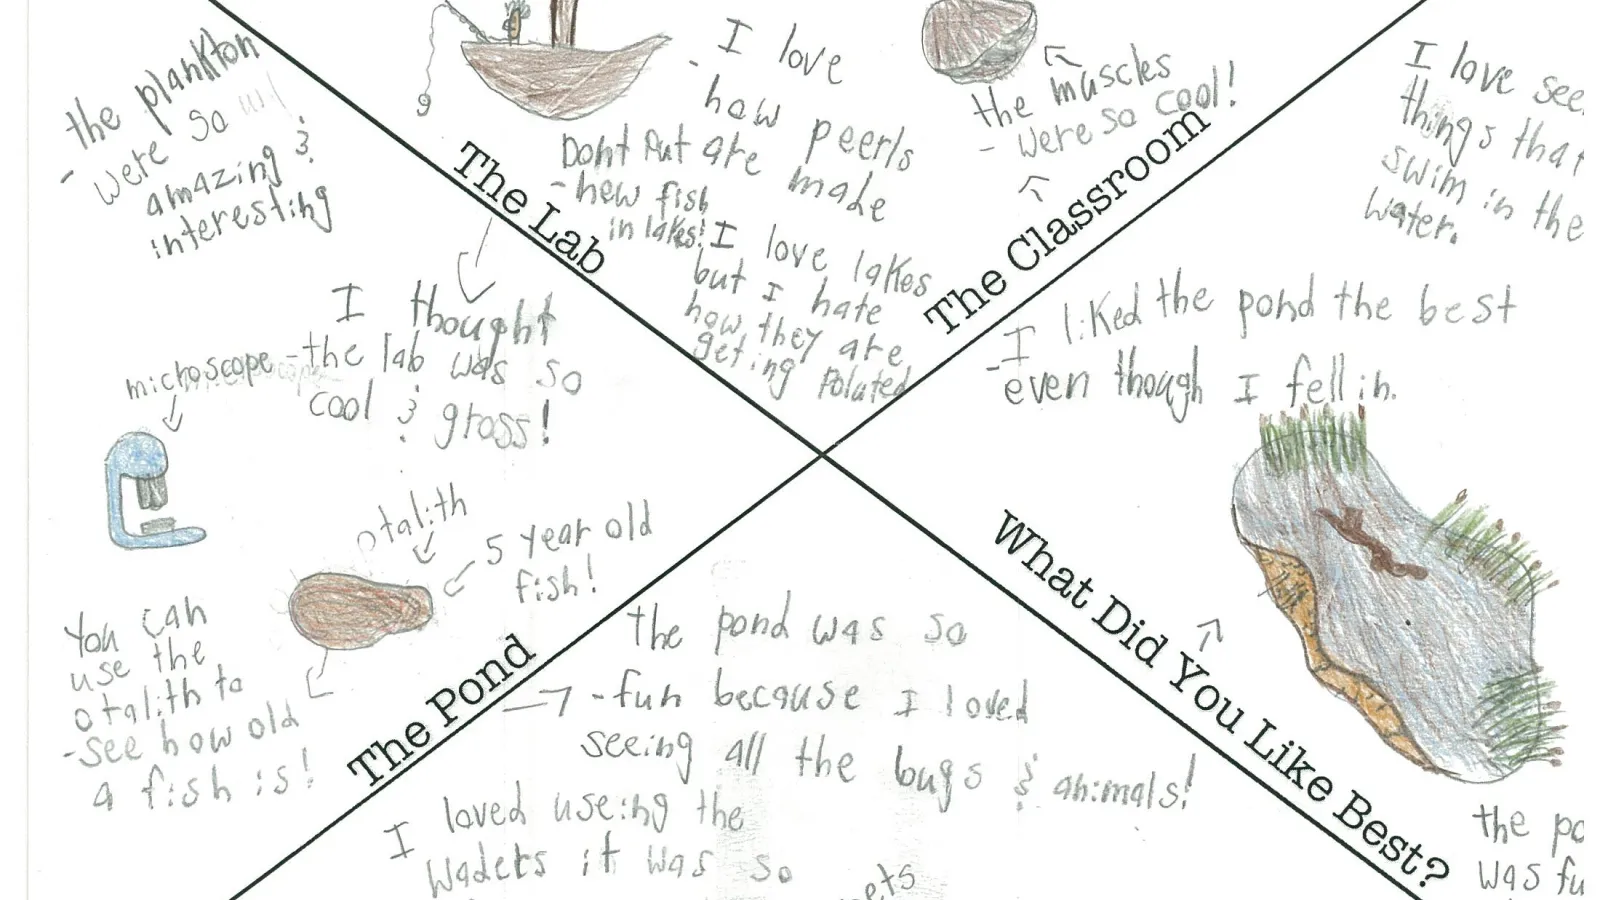 the plankton
- were so
amazing &
interesting
The Lab
I thought
- the lab was so
cool & gross!
michoscope
otalith
5 year old
fish!
You can
use the
otalith to
- see how old
a fish is!
I love
- how peerls
are made
Dont Put
- new fish
in lakes!
I love lakes
but I hate
how they are
geting Poluted
the muscles
- were so cool!
The Classroom
I love see
things that
swim in the
water.
- I liked the pond the best
even though I fell in.
What Did You Like Best?
the po
was fu
The Pond
the pond was so
- fun because I loved
seeing all the bugs & animals!
I loved useing the
waders it was so
ets